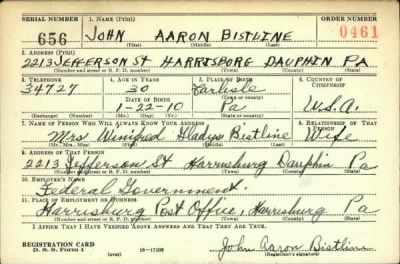 SERIAL NUMBER 1. NAME (Print) ORDER NUMBER
656 JOHN AARON BISTLINE 0461
(First) (Middle) (Last)
2. ADDRESS (Print)
2213 JEFFERSON ST HARRISBORG DAUPHIN PA
(Number and street or R. F. D. number) (Town) (County) (State)
3. TELEPHONE 4. AGE IN YEARS 5. PLACE OF BIRTH 6. COUNTRY OF CITIZENSHIP
34727 30 Carlisle
DATE OF BIRTH (Town or county)
1-22-10 Pa U.S.A.
(Mo.) (Day) (Yr.) (State or country)
7. NAME OF PERSON WHO WILL ALWAYS KNOW YOUR ADDRESS 8. RELATIONSHIP OF THAT PERSON
Mrs Winifred Gladys Bistline Wife
(Mr., Mrs., Miss) (First) (Middle) (Last)
9. ADDRESS OF THAT PERSON
2213 Jefferson St Harrisburg Dauphin Pa
(Number and street or R. F. D. number) (Town) (County) (State)
10. EMPLOYER'S NAME
Federal Government.
11. PLACE OF EMPLOYMENT OR BUSINESS
Harrisburg Post Office, Harrisburg Pa
(Number and street or R. F. D. number) (Town) (County) (State)
I AFFIRM THAT I HAVE VERIFIED ABOVE ANSWERS AND THAT THEY ARE TRUE.
REGISTRATION CARD
D. S. S. Form 1 (over) John Aaron Bistline
(Registrant's signature)